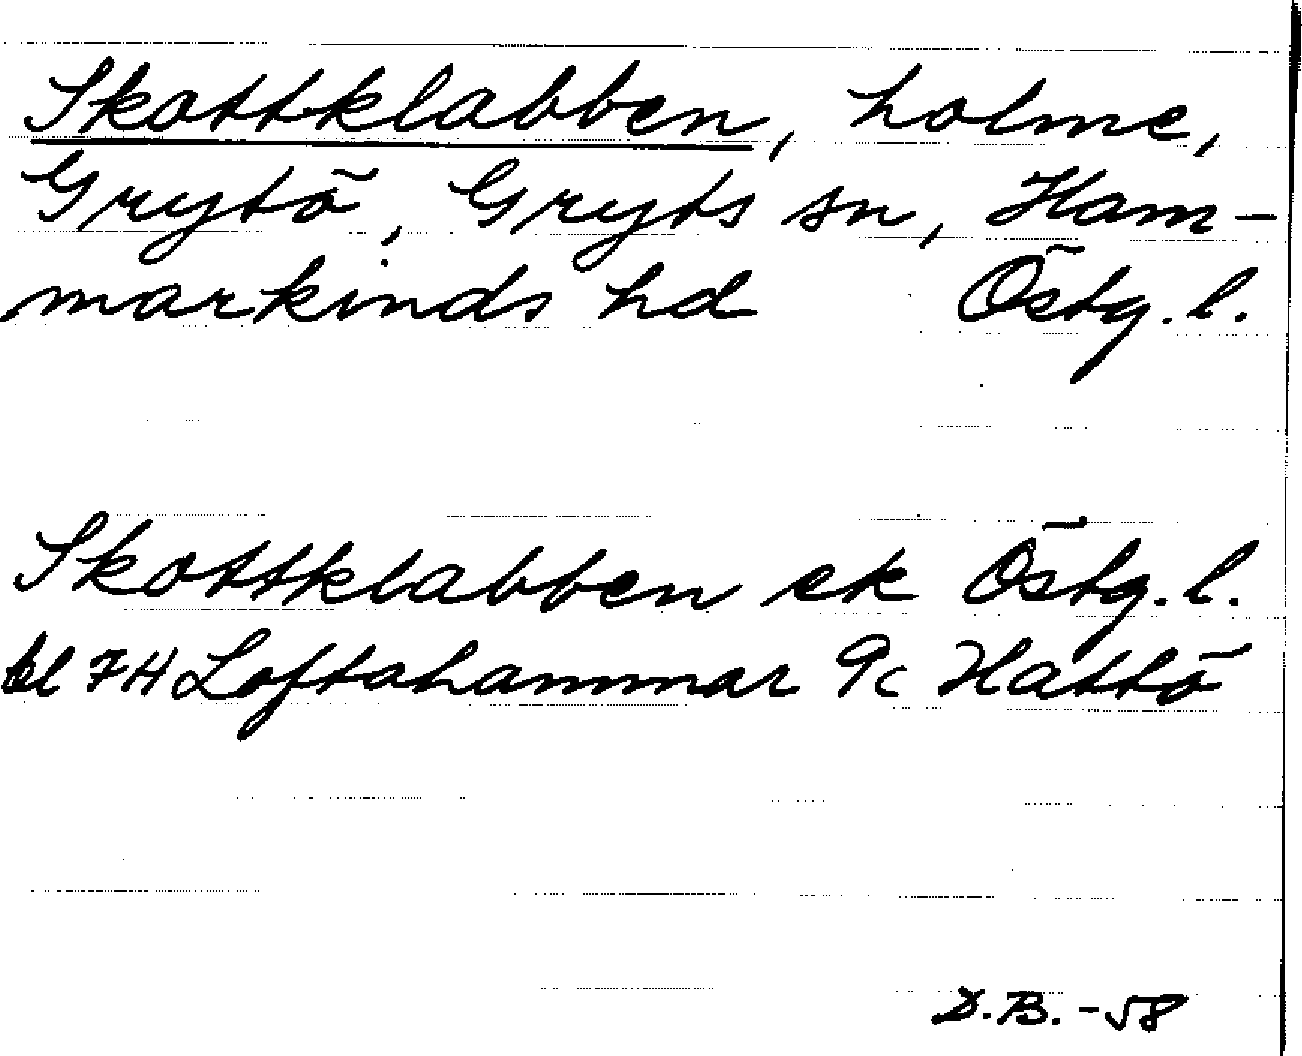 Skottklabben, holme,
Grytö, Gryts sn, Ham-
markinds hd Östg. l.
Skottklabben ek Östg. l.
bl 7H Loftahammar 9c Hattö
D.B. -58